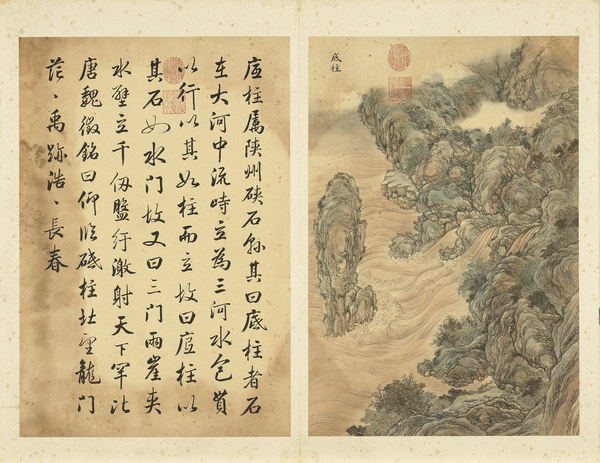 底柱
底柱屬陝州硤石縣其曰底柱者石
在大河中流峙立為三河水包貫
以行以其如柱而立故曰底柱以
其石如水門故又曰三門兩崖夾
水壁立千仞盤紆激射天下罕比
唐魏徵銘曰仰臨砥柱北望龍門
茫〻禹跡浩〻長春